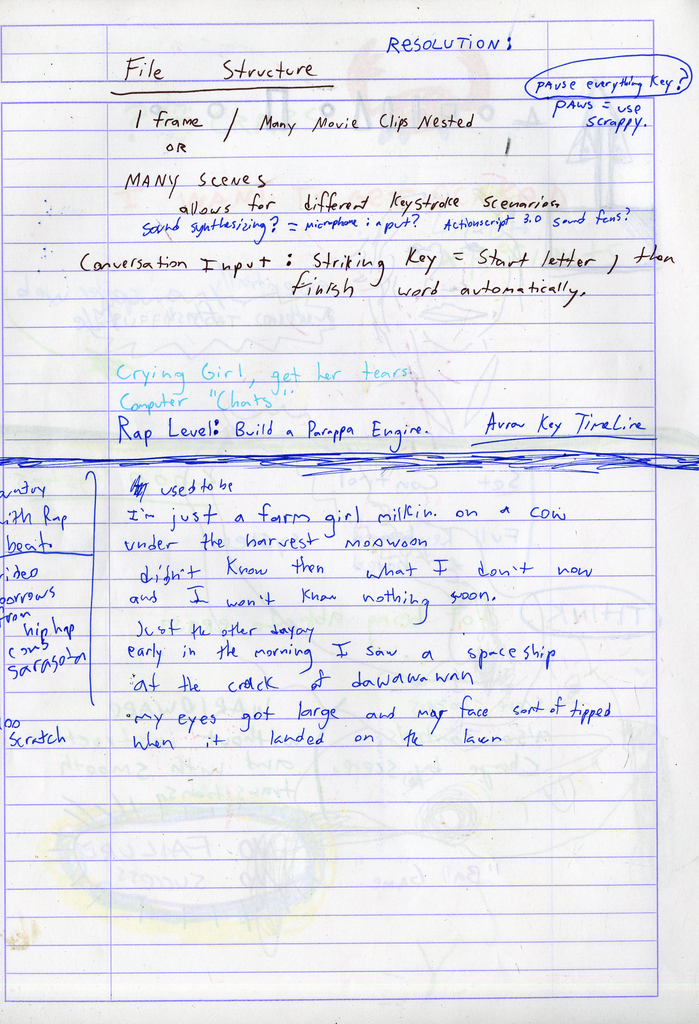 RESOLUTION:
File Structure
pause everything key?
paws = use
scrappy.
1 frame / Many Movie Clips Nested
OR
MANY SCENES
allows for different keystroke scenarios
Sound synthesizing? = microphone input? Actionscript 3.0 sound fcns?
Conversation Input : Striking Key = Start letter, then
finish word automatically.
Crying Girl, get her tears.
Computer "Chats"
Rap Level: Build a Parappa Engine.
Key TimeLine
used to be
I'm just a farm girl milkin. on a cow
under the harvest moowoon
didn't know then what I don't now
and I won't know nothing soon.
Just the other dayay
early in the morning I saw a spaceship
at the crack of dawawawnn
my eyes got large and my face sort of tipped
When it landed on the lawn
untry
ith Rap
beat.
video
borrows
from
hip hop
sarasota
Scratch
FAILURE
SUCCESS
"Bad Game